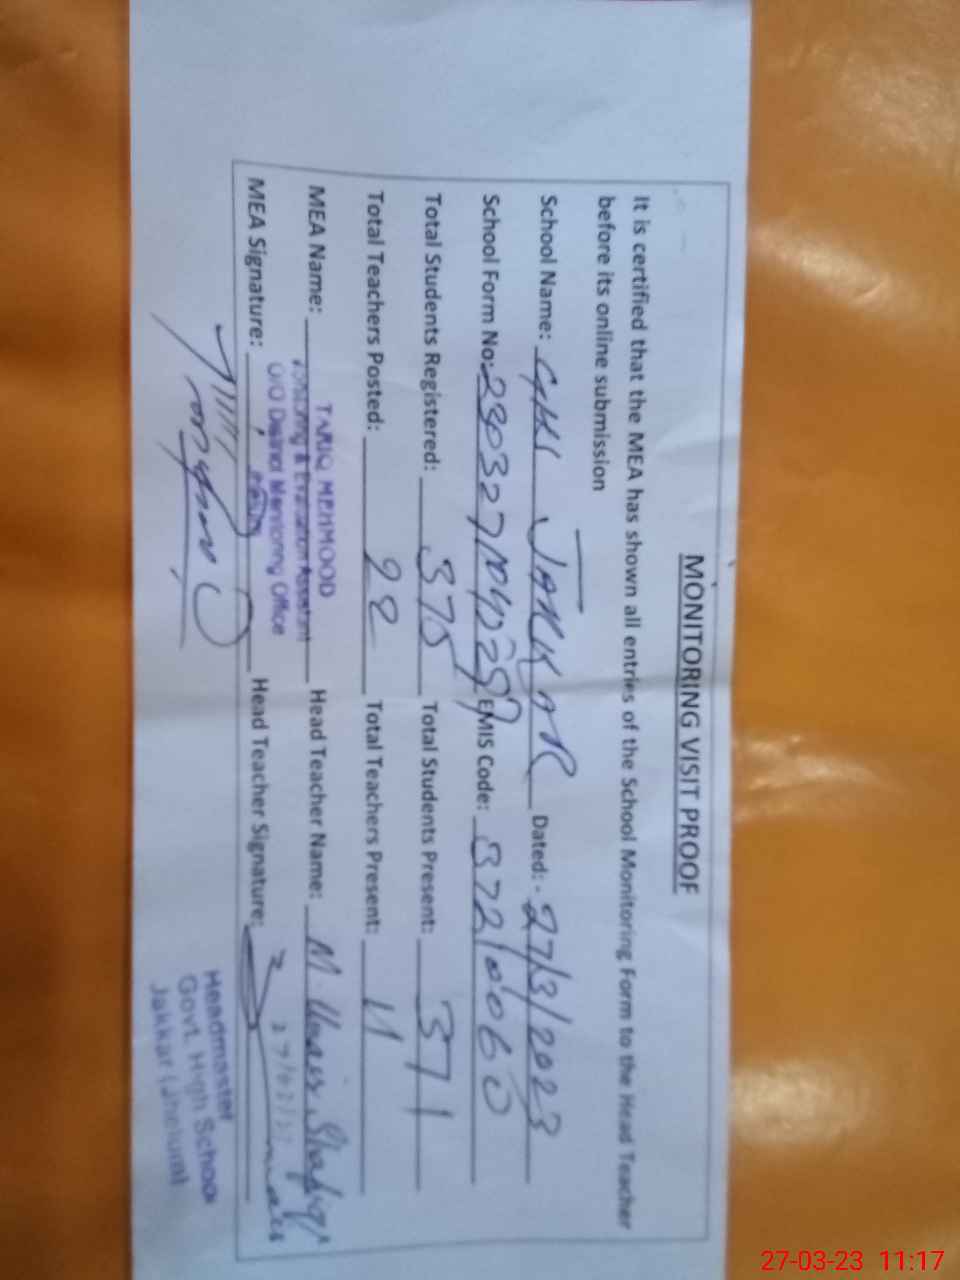 MONITORING VISIT PROOF
It is certified that the MEA has shown all entries of the School Monitoring Form to the Head Teacher
before its online submission
School Name: GHS JAKKAR Dated: - 27/3/2023
School Form No: EMIS Code: 37210060
Total Students Registered: 375 Total Students Present: 371
Total Teachers Posted: Total Teachers Present: 11
MEA Name: TARIQ MEHMOOD Head Teacher Name: M.
Monitoring & Evaluation Assistant
O/O District Monitoring Office
MEA Signature: Head Teacher Signature:
Headmaster
Govt. High School
Jakkar (Jhelum)
27-03-23 11:17